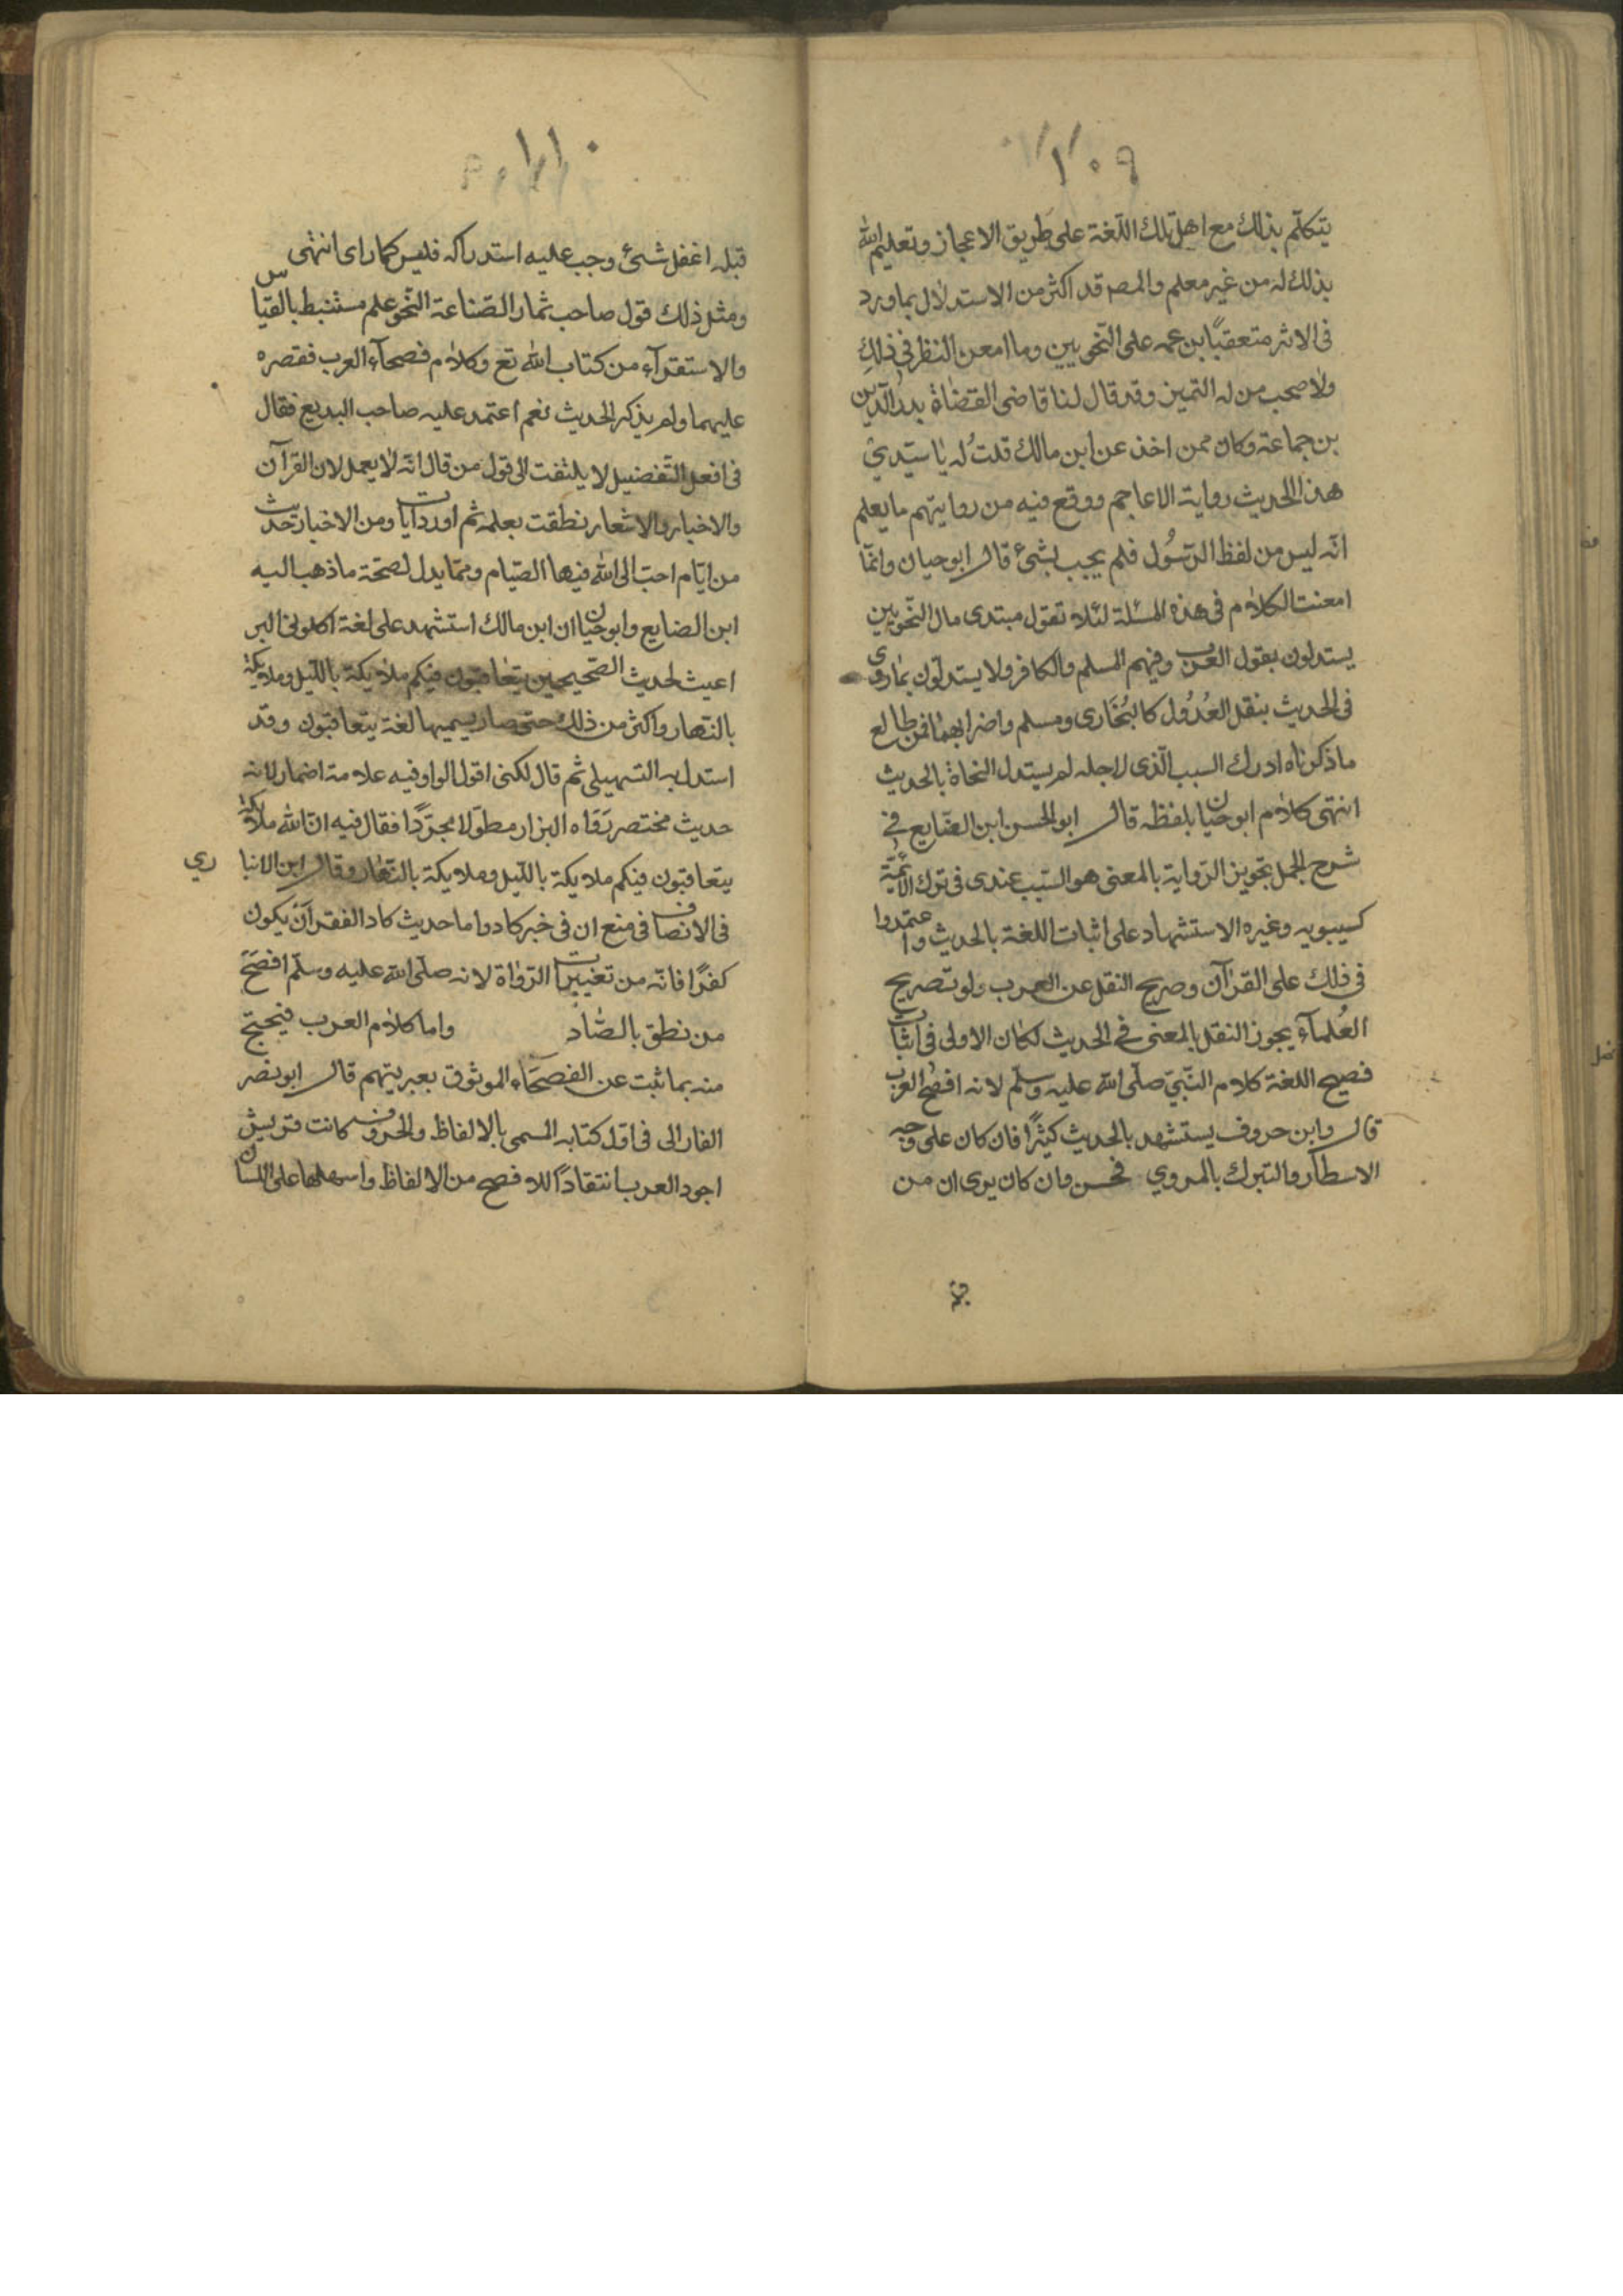 ١٠٩
يتكلّم بذلك مع اهل تلك اللّغة على طريق الاعجاز وتعليم الله
بذلك له من غير معلم والمصـ قد اكثر من الاستدلال بماورد
فى الاثر متعقبًا بزعمه على النّحويين وما امعن النظر فى ذلك
ولا صحب من له التميز وقد قال لنا قاضى القضاة بدر الدّين
بن جماعة وكان ممن اخذ عن ابن مالك قلتُ له يا سيّدي
هذا الحديث رواية الاعاجم ووقع فيه من روايتهم ما يعلم
انّه ليس من لفظ الرّسُول فلم يجب بشئ قال ابو حيان وانّما
امعنت الكلام فى هذه المسئلة لئلا تقول مبتدى مال النّحويين
يستدلون بقول العرب وفيهم المسلم والكافر ولا يستدلّون بماروى
فى الحديث بنقل العُدُول كالبُخَارى ومسلم واضرابهما فمن طالع
ما ذكرناه ادرك السبب الّذى لاجله لم يستدل النحاة بالحديث
انتهى كلام ابو حيان بلفظه قال ابو الحسن ابن الضايع فى
شرح الجمل تجويز الرّواية بالمعنى هو السّبب عندى فى ترك الائمّة
كسيبويه وغيره الاستشهاد على اثبات اللغة بالحديث واعتمدوا
فى ذلك على القرآن وصريح النقل عن العرب ولو تصريح
العُلمآء يجوز النقل بالمعنى فى الحديث لكان الاولى فى اثبات
فصيح اللغة كلام النّبىّ صلّى الله عليه وسلّم لانه افصح العرب
قال وابن حروف يستشهد بالحديث كثيرًا فان كان على وجه
الاسطآر والتبرك بالمروي فحسن وان كان يرى ان من
١١٠
قبله اغفل شئ وجب عليه استدراكه فليس كمارای انتهى
ومثل ذلك قول صاحب ثمار الصّناعة النّحو علم مستنبط بالقياس
والاستقرآء من كتاب الله تع وكلام فصحآء العرب فقصره
عليهما ولم يذكر الحديث نعم اعتمد عليه صاحب البديع فقال
فى افعل التّفضيل لا يلتفت الى قول من قال انّه لا يعمل لان القرآن
والاخبار والاشعار نطقت بعلمه ثم اورد ايات ومن الاخبار حديث
من ايّام احبّ الى الله فيها الصّيام وممّا يدل لصحّة ماذهب اليه
ابن الضايع وابو حيان ان ابن مالك استشهد على لغة اكلونى البر
اعيث لحديث الصّحيحين يتعاقبون فيكم ملايكة بالليل وملايكة
بالنّهار واكثر من ذلك حتى صار يسميها لغة يتعاقبون وقد
استدل به السّهيلى ثم قال لكنى اقول الواو فيه علامة اضمار لانه
حديث مختصر رَوَاه البزار مطولا مجرّدًا فقال فيه انّ الله ملايكة
يتعاقبون فيكم ملايكة بالليل وملايكة بالنّهار وقال ابن الانبا ري
فى الانصاف فى منع ان فى خبر كاد واما حديث كاد الفقر آن يكون
كفرًا فانّه من تغييرات الرّواة لانه صلّى الله عليه وسلّم افصَحَ
من نطق بالضّاد واما كلام العرب فيحتج
منه بماثبت عن الفصحَاء الموثوق بعربيتهم قال ابو نصر
الفارابى فى اوّل كتابه المسمى بالالفاظ والحروف كانت قريش
اجود العرب انتقادًا للافصح من الالفاظ واسهلها على اللسان